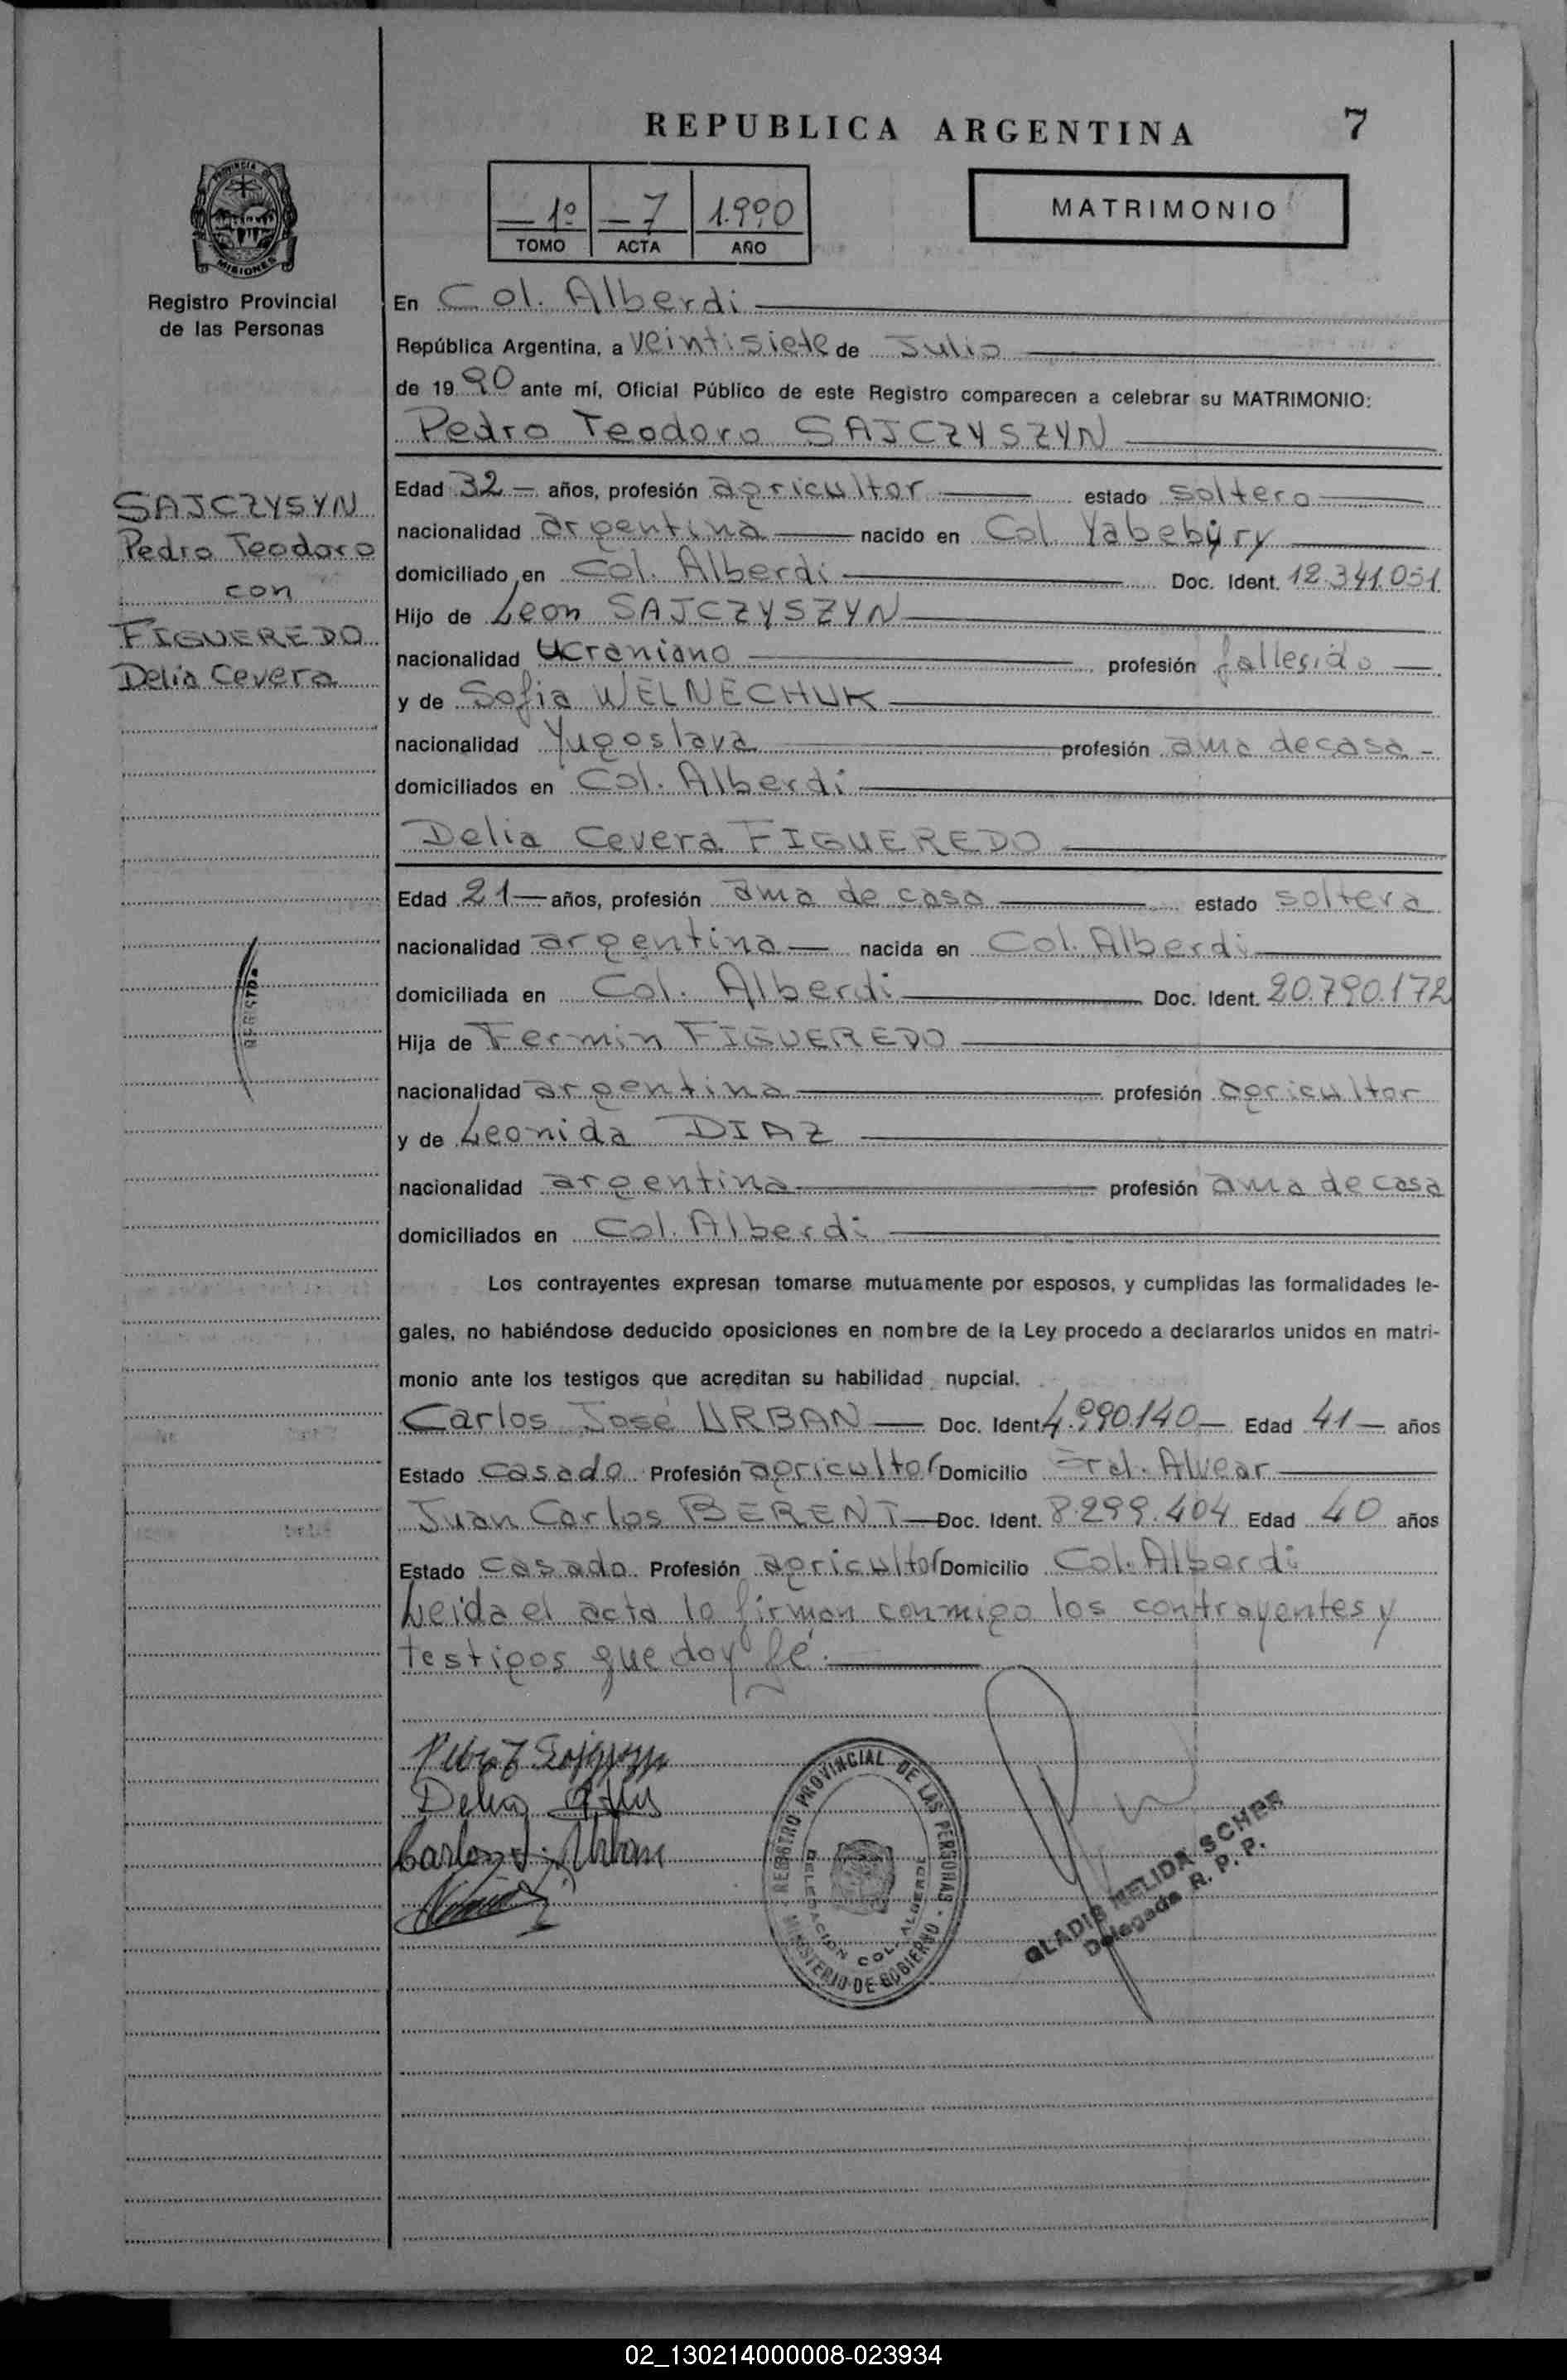 REPUBLICA ARGENTINA
7
PROVINCIA DE
MISIONES
Registro Provincial
de las Personas
1º
TOMO
7
ACTA
1.990
AÑO
MATRIMONIO
En Col. Alberdi
República Argentina, a veintisiete de Julio
de 1990 ante mí, Oficial Público de este Registro comparecen a celebrar su MATRIMONIO:
Pedro Teodoro SAJCZYSZYN
SAJCZYSYN
Pedro Teodoro
con
FIGUEREDO
Delia Cevera
Edad 32 años, profesión agricultor estado soltero
nacionalidad argentina nacido en Col. Yabebýry
domiciliado en Col. Alberdi Doc. Ident. 12.341.051
Hijo de Leon SAJCZYSZYN
nacionalidad Ucraniano profesión fallecido
y de Sofia WELNECHUK
nacionalidad Yugoslava profesión ama de casa
domiciliados en Col. Alberdi
Delia Cevera FIGUEREDO
Edad 21 años, profesión ama de casa estado soltera
nacionalidad argentina nacida en Col. Alberdi
domiciliada en Col. Alberdi Doc. Ident. 20.790.172
Hija de Fermin FIGUEREDO
nacionalidad argentina profesión agricultor
y de Leonida DIAZ
nacionalidad argentina profesión ama de casa
domiciliados en Col. Alberdi
Los contrayentes expresan tomarse mutuamente por esposos, y cumplidas las formalidades le-
gales, no habiéndose deducido oposiciones en nombre de la Ley procedo a declararlos unidos en matri-
monio ante los testigos que acreditan su habilidad nupcial.
Carlos José URBAN Doc. Ident. 4.990.140 Edad 41 años
Estado casado Profesión agricultor Domicilio Gral. Alvear
Juan Carlos BERENT Doc. Ident. 8.299.404 Edad 40 años
Estado casado Profesión agricultor Domicilio Col. Alberdi
Leída el acta la firman conmigo los contrayentes y
testigos que doy fé.
Delia
Carlos J. Urban
REGISTRO PROVINCIAL DE LAS PERSONAS
MINISTERIO DE GOBIERNO
DELEGACION COL. ALBERDI
GLADIS NELIDA SCHER
Delegada R. P. P.
02_130214000008-023934